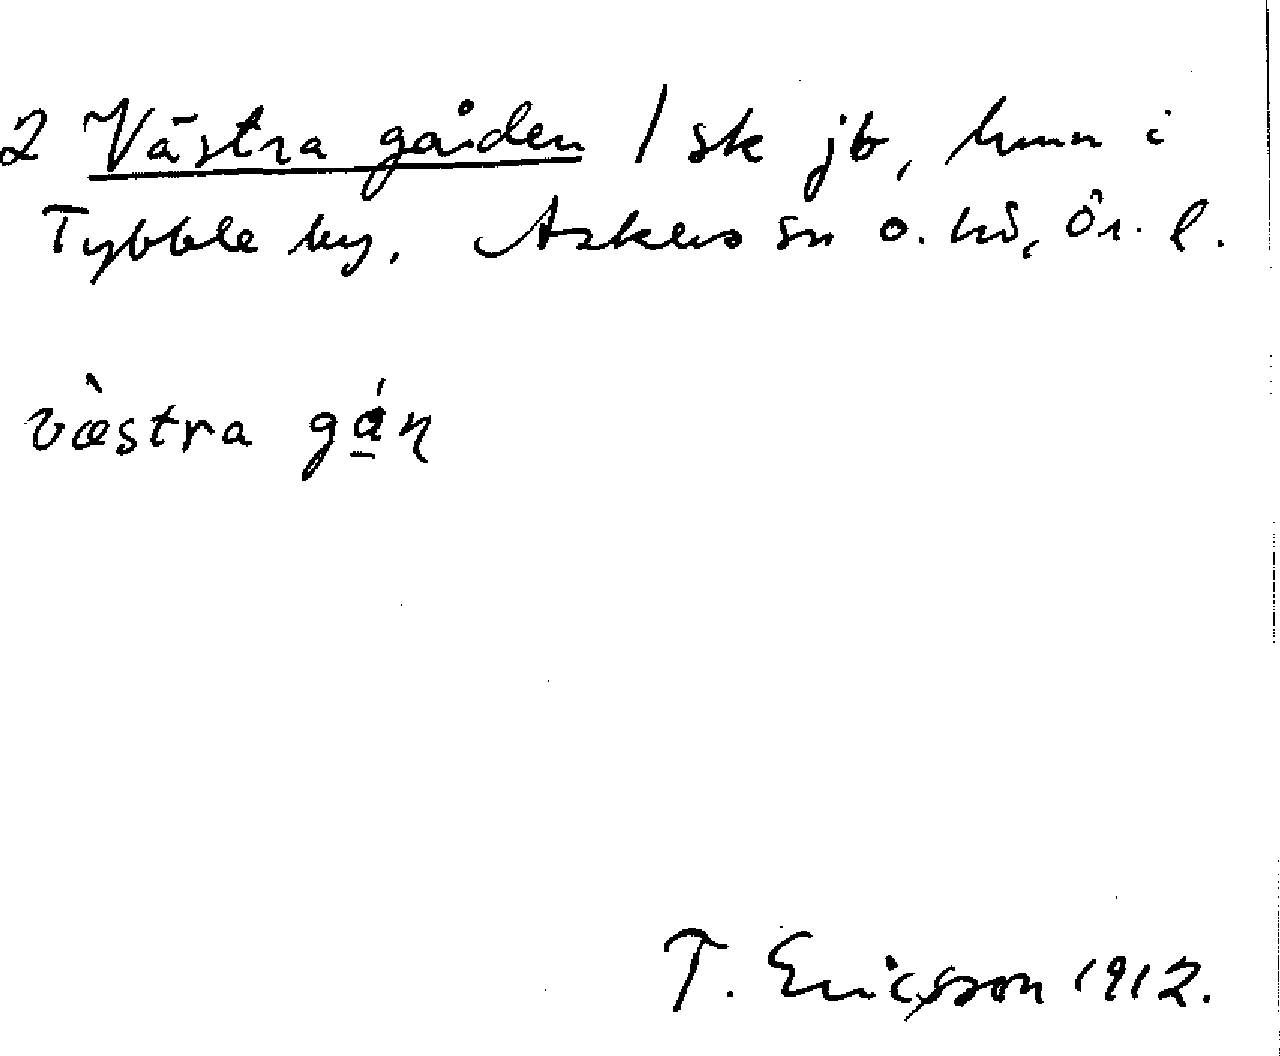 2 Västra gården / sk jb, hmn i
Tybble by, Askers sn o. hd, Ör. l.
västra gá̱ɳ
T. Ericsson 1912.